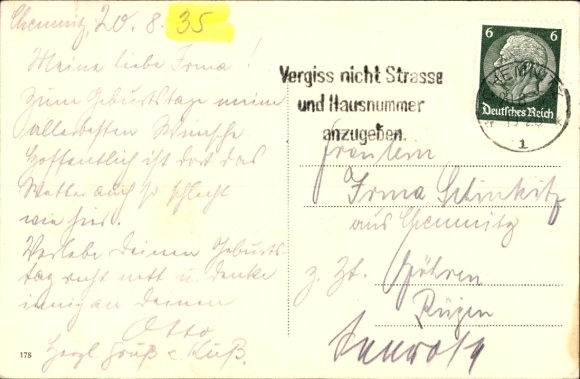 Chemnitz, 20. 8. 35
Meine liebe Irma!
Zum Geburtstage meine
allerbesten Wünsche
Hoffentlich ist dort das
Wetter auch so schlecht
wie hier.
Verlebe Deinen Geburts-
tag recht nett u. denke
innig an Deinen
Otto
Herzl. Gruß & Kuß.
178
Vergiss nicht Strasse
und Hausnummer
anzugeben.
6 6
Deutsches Reich
CHEMNITZ
1
Fräulein
Irma
aus Chemnitz
z. Zt. Göhren
Rügen